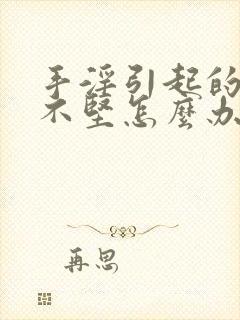 手淫引起的
不堅怎麼办
再思